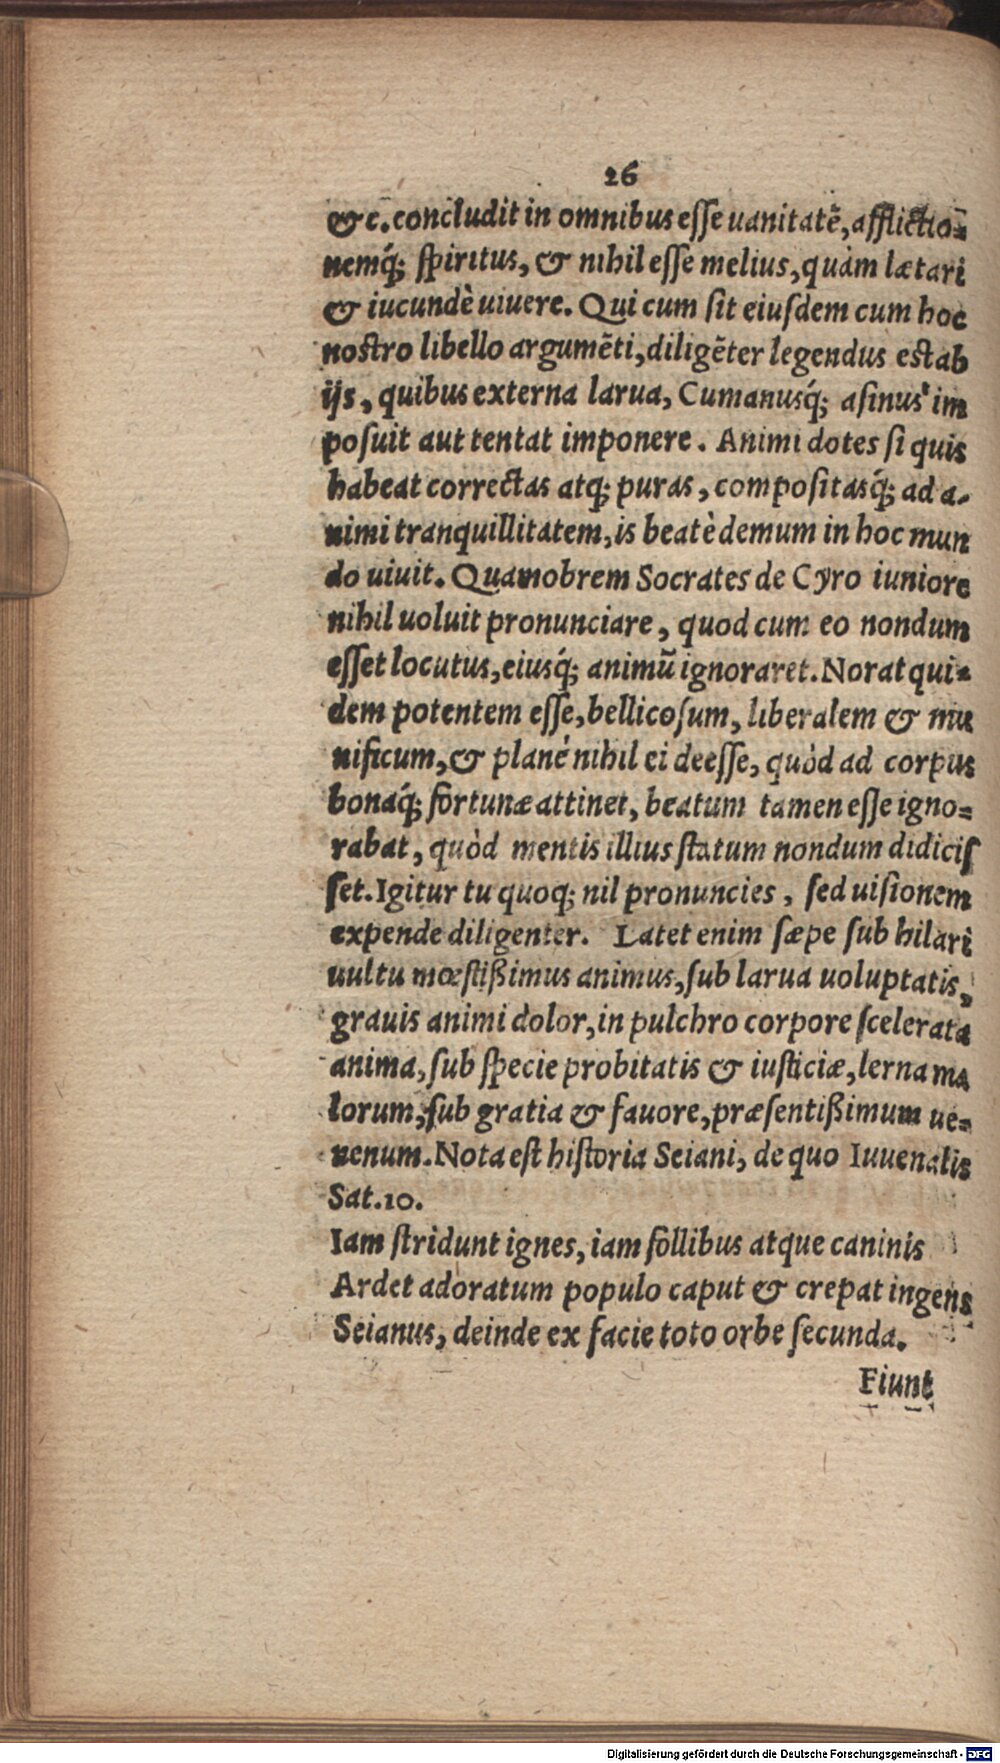 26
&c. concludit in omnibus esse uanitatẽ, afflictio=
nemq́; spiritus, & nihil esse melius, quàm lætari
& iucundè uiuere. Qui cum sit eiusdem cum hoc
nostro libello argumẽti, diligẽter legendus est ab
ijs, quibus externa larua, Cumanusq́; asinus im
posuit aut tentat imponere. Animi dotes si quis
habeat correctas atq; puras, compositasq́; ad a-
nimi tranquillitatem, is beatè demum in hoc mun
do uiuit. Quamobrem Socrates de Cyro iuniore
nihil uoluit pronunciare, quod cum eo nondum
esset locutus, eiusq́; animũ ignoraret. Norat qui=
dem potentem esse, bellicosum, liberalem & mu
nificum, & planè nihil ei deesse, quòd ad corpus
bonaq́; fortunæ attinet, beatum tamen esse igno=
rabat, quòd mentis illius statum nondum didicis
set. Igitur tu quoq; nil pronuncies, sed uisionem
expende diligenter. Latet enim sæpe sub hilari
uultu mœstißimus animus, sub larua uoluptatis,
grauis animi dolor, in pulchro corpore scelerata
anima, sub specie probitatis & iusticiæ, lerna ma
lorum, sub gratia & fauore, præsentißimum ue=
nenum. Nota est historia Seiani, de quo Iuuenalis
Sat. 10.
Iam stridunt ignes, iam follibus atque caninis
Ardet adoratum populo caput & crepat ingens
Seianus, deinde ex facie toto orbe secunda.
Fiunt
Digitalisierung gefördert durch die Deutsche Forschungsgemeinschaft - DFG